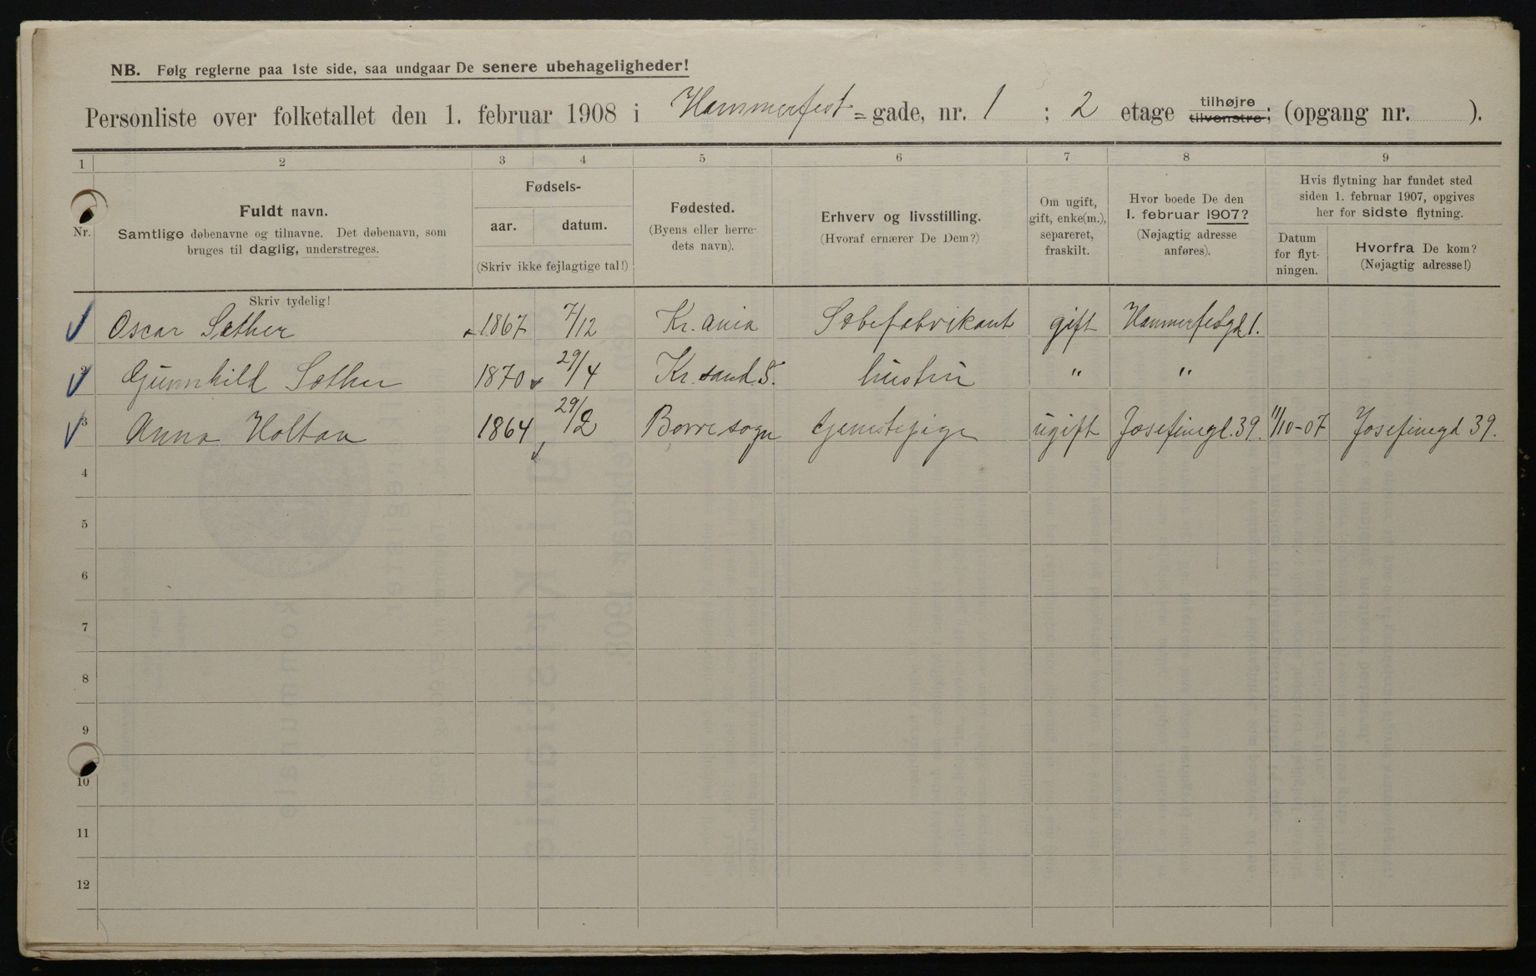 NB. Følg reglerne paa 1ste side, saa undgaar De senere ubehageligheder!
Personliste over folketallet den 1. februar 1908 i Hammerfest=gade, nr. 1 ; 2 etage tilhøjre tilvenstre; (opgang nr. ).
1 2 3 4 5 6 7 8 9
Nr.
Fuldt navn.
Samtlige døbenavne og tilnavne. Det døbenavn, som
bruges til daglig, understreges.
Fødsels-
aar. datum.
(Skriv ikke fejlagtige tal!)
Fødested.
(Byens eller herre-
dets navn).
Erhverv og livsstilling.
(Hvoraf ernærer De Dem?)
Om ugift,
gift, enke(m.),
separeret,
fraskilt.
Hvor boede De den
1. februar 1907?
(Nøjagtig adresse
anføres).
Hvis flytning har fundet sted
siden 1. februar 1907, opgives
her for sidste flytning.
Datum
for flyt-
ningen.
Hvorfra De kom?
(Nøjagtig adresse!)
Skriv tydelig!
Oscar Sæther 1867 7/12 Kr.ania Sæbefabrikant gift Hammerfestgd 1.
2 Gunnhild Sæther 1870 29/4 Kr.sand S. hustru " "
3 Anna Holtan 1864 29/2 Borre sogn Tjenestepige ugift Josefinegd. 39. 11/10-07 Josefinegd 39.
4
5
6
7
8
9
10
11
12